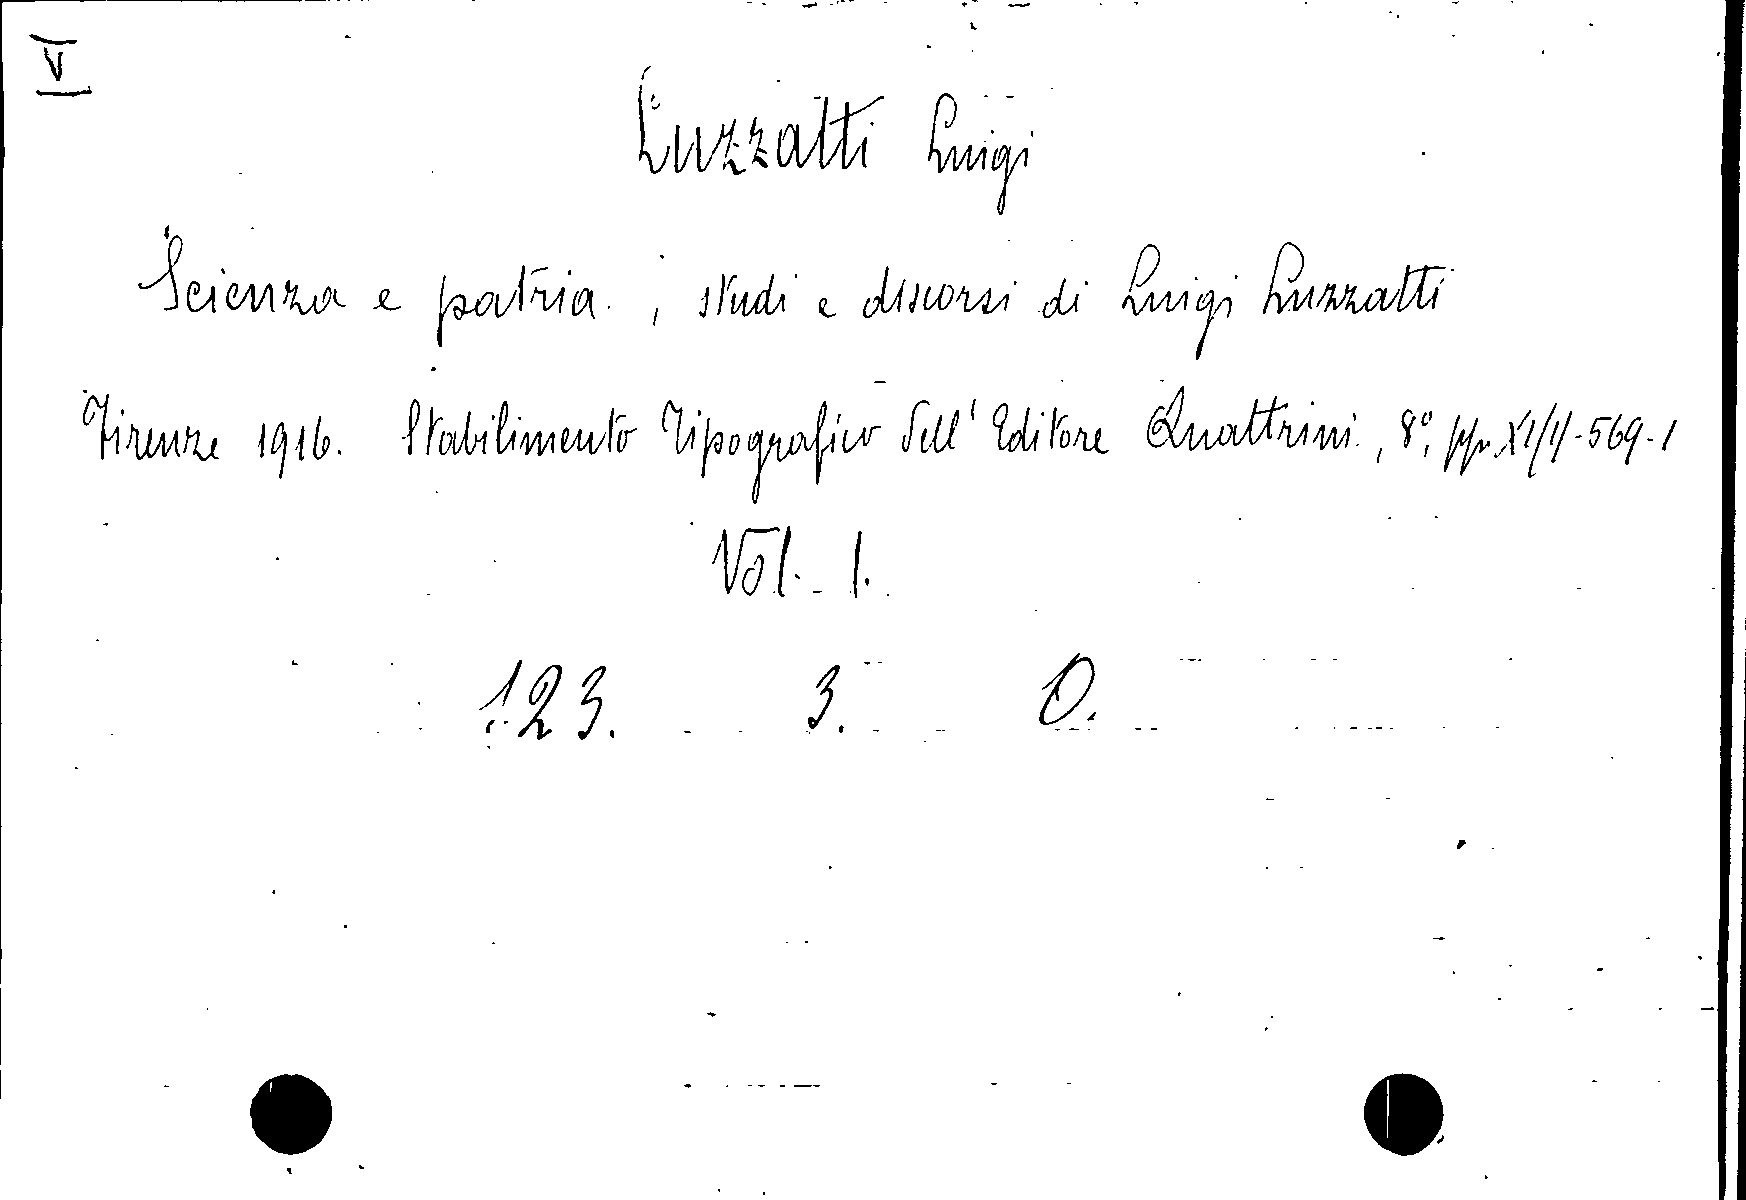 V
Luzzatti Luigi
Scienza e patria. ; studi e discorsi di Luigi Luzzatti
Firenze 1916. Stabilimento Tipografico dell' Editore Quattrini., 8°, pp. -569-1
Vol. I.
123. 3. O.